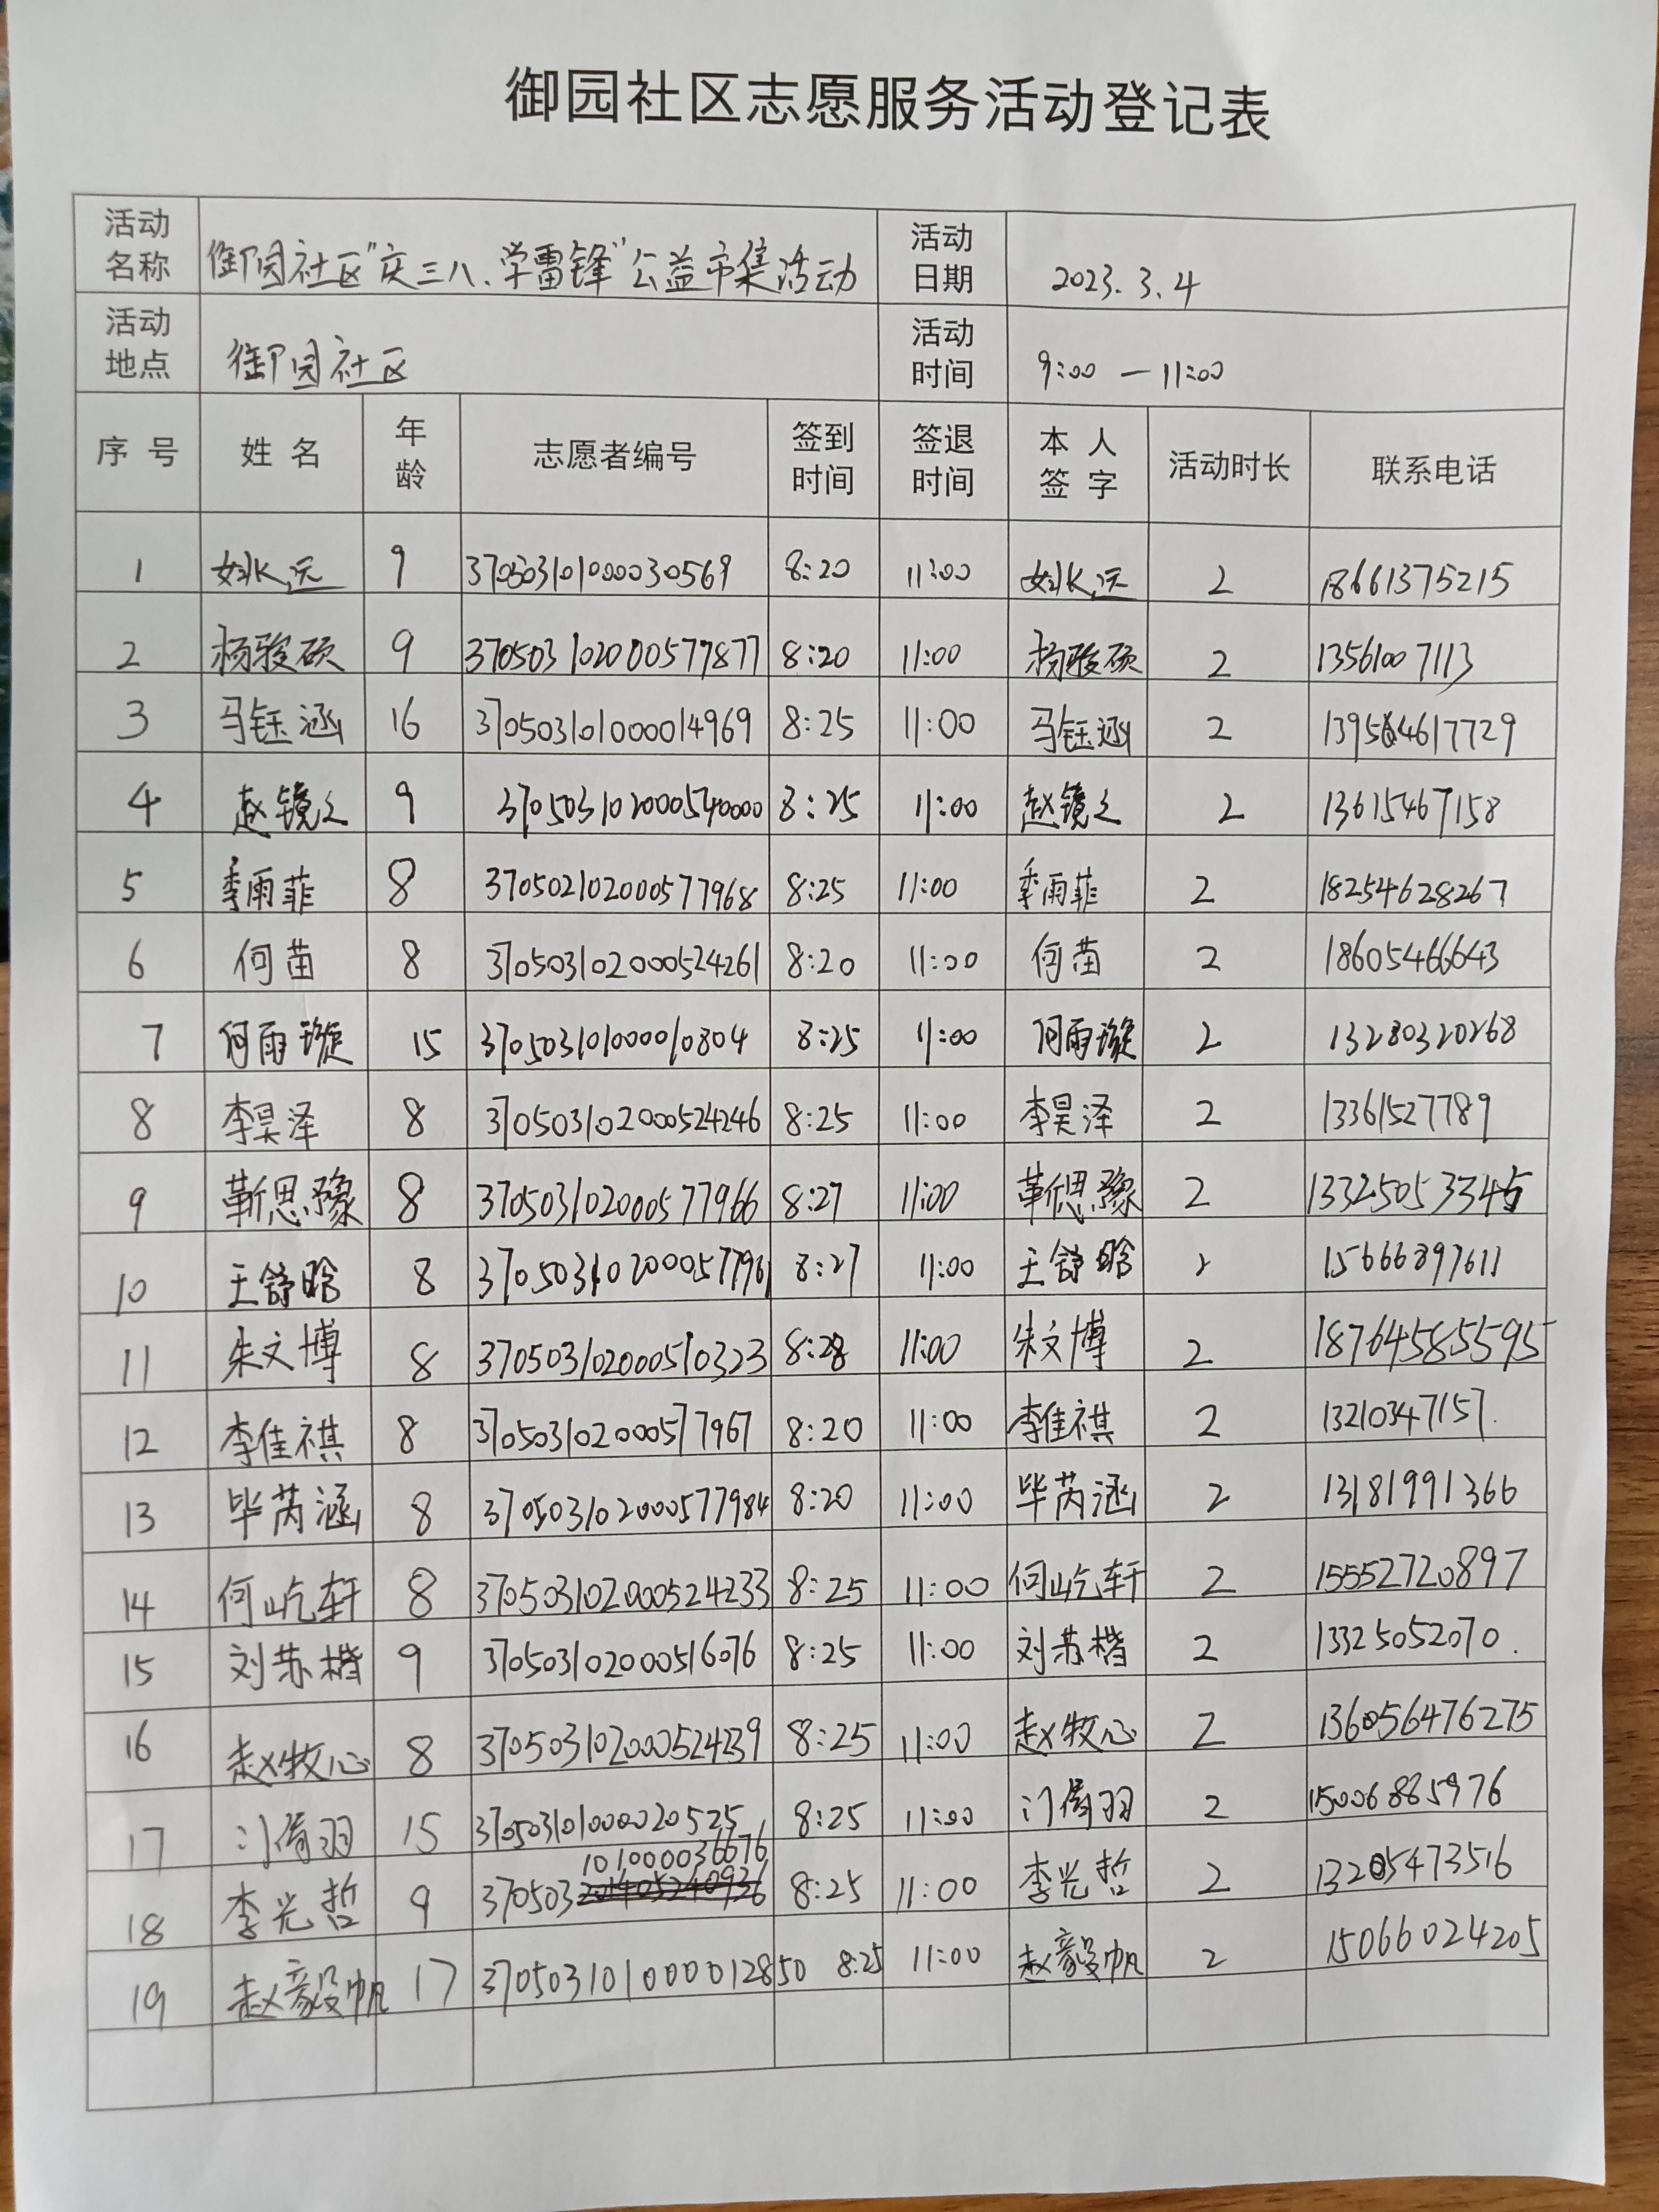 御园社区志愿服务活动登记表
活动名称 御园社区"庆三八、学雷锋"公益市集活动 活动日期 2023.3.4
活动地点 御园社区 活动时间 9:00 — 11:00
序号 姓名 年龄 志愿者编号 签到时间 签退时间 本人签字 活动时长 联系电话
1 9 370503101000030569 8:20 11:00 2 18661375215
2 杨骏硕 9 370503102000577877 8:20 11:00 杨骏硕 2 13561007113
3 马钰涵 16 370503101000014969 8:25 11:00 马钰涵 2 13954617729
4 赵镜之 9 370503102000540000 8:25 11:00 赵镜之 2 13615467158
5 季雨菲 8 370502102000577968 8:25 11:00 季雨菲 2 18254628267
6 何苗 8 370503102000524261 8:20 11:00 何苗 2 18605466643
7 何雨璇 15 370503101000010804 8:25 11:00 何雨璇 2 13280320268
8 李昊泽 8 370503102000524246 8:25 11:00 李昊泽 2 13361527789
9 靳思豫 8 370503102000577966 8:27 11:00 靳思豫 2 13325053345
10 王舒晗 8 370503102000577961 8:27 11:00 王舒晗 2 15666897611
11 朱文博 8 370503102000510323 8:28 11:00 朱文博 2 18764585595
12 李佳祺 8 370503102000577967 8:20 11:00 李佳祺 2 13210347157.
13 毕芮涵 8 370503102000577984 8:20 11:00 毕芮涵 2 13181991366
14 何屹轩 8 370503102000524233 8:25 11:00 何屹轩 2 15552720897
15 刘苏楷 9 370503102000516076 8:25 11:00 刘苏楷 2 13325052070.
16 赵牧心 8 370503102000524239 8:25 11:00 赵牧心 2 136056476275
17 15 370503101000020525 8:25 11:00 2 15006885976
18 李光哲 9 370503101000036676 8:25 11:00 李光哲 2 13205473516
19 赵毅帆 17 370503101000012850 8:25 11:00 赵毅帆 2 15066024205